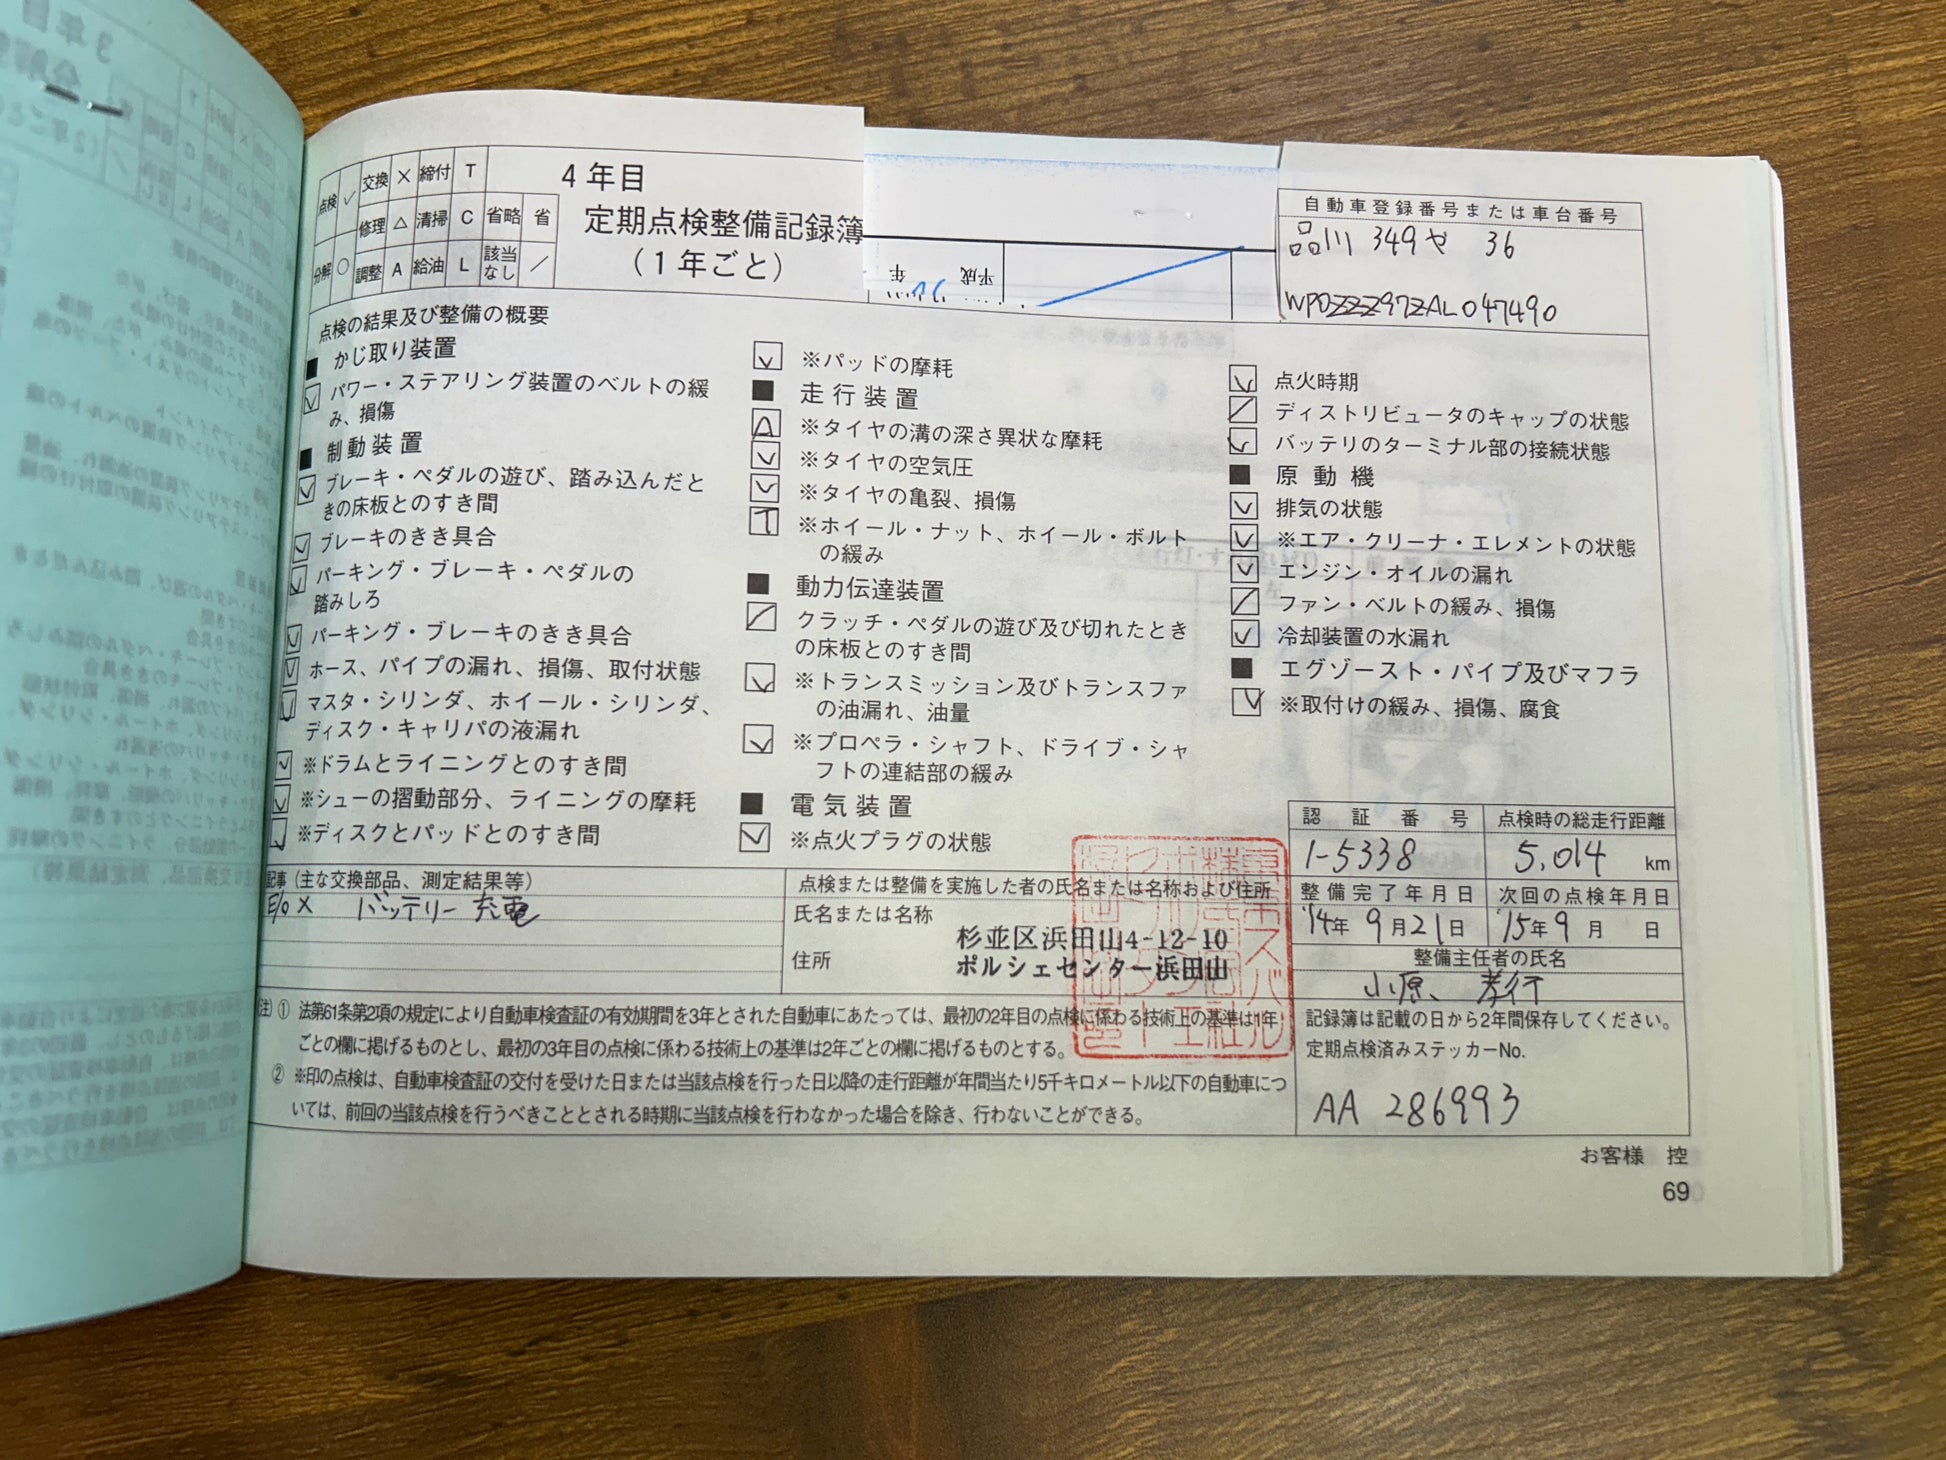 点検 ✓ 交換 × 締付 T
分解 ○ 修理 △ 清掃 C 省略 省
調整 A 給油 L 該当なし ／
4年目
定期点検整備記録簿
（1年ごと）
平成
年
自動車登録番号または車台番号
品川 349や 36
WP0ZZZ97ZAL047490
点検の結果及び整備の概要
■ かじ取り装置
パワー・ステアリング装置のベルトの緩
み、損傷
■ 制動装置
ブレーキ・ペダルの遊び、踏み込んだと
きの床板とのすき間
ブレーキのきき具合
パーキング・ブレーキ・ペダルの
踏みしろ
パーキング・ブレーキのきき具合
ホース、パイプの漏れ、損傷、取付状態
マスタ・シリンダ、ホイール・シリンダ、
ディスク・キャリパの液漏れ
※ドラムとライニングとのすき間
※シューの摺動部分、ライニングの摩耗
※ディスクとパッドとのすき間
※パッドの摩耗
■ 走行装置
※タイヤの溝の深さ異状な摩耗
※タイヤの空気圧
※タイヤの亀裂、損傷
T ※ホイール・ナット、ホイール・ボルト
の緩み
■ 動力伝達装置
クラッチ・ペダルの遊び及び切れたとき
の床板とのすき間
※トランスミッション及びトランスファ
の油漏れ、油量
※プロペラ・シャフト、ドライブ・シャ
フトの連結部の緩み
■ 電気装置
※点火プラグの状態
点火時期
ディストリビュータのキャップの状態
バッテリのターミナル部の接続状態
■ 原動機
排気の状態
※エア・クリーナ・エレメントの状態
エンジン・オイルの漏れ
ファン・ベルトの緩み、損傷
冷却装置の水漏れ
■ エグゾースト・パイプ及びマフラ
※取付けの緩み、損傷、腐食
記事（主な交換部品、測定結果等）
E/o × バッテリー充電
点検または整備を実施した者の氏名または名称および住所
氏名または名称
杉並区浜田山4-12-10
住所
ポルシェセンター浜田山
認証番号
1-5338
点検時の総走行距離
5,014 km
整備完了年月日
'14年 9月21日
次回の点検年月日
'15年 9月 日
整備主任者の氏名
小原、孝行
(注) ① 法第61条第2項の規定により自動車検査証の有効期間を3年とされた自動車にあたっては、最初の2年目の点検に係わる技術上の基準は1年
ごとの欄に掲げるものとし、最初の3年目の点検に係わる技術上の基準は2年ごとの欄に掲げるものとする。
② ※印の点検は、自動車検査証の交付を受けた日または当該点検を行った日以降の走行距離が年間当たり5千キロメートル以下の自動車につ
いては、前回の当該点検を行うべきこととされる時期に当該点検を行わなかった場合を除き、行わないことができる。
記録簿は記載の日から2年間保存してください。
定期点検済みステッカーNo.
AA 286993
お客様 控
69